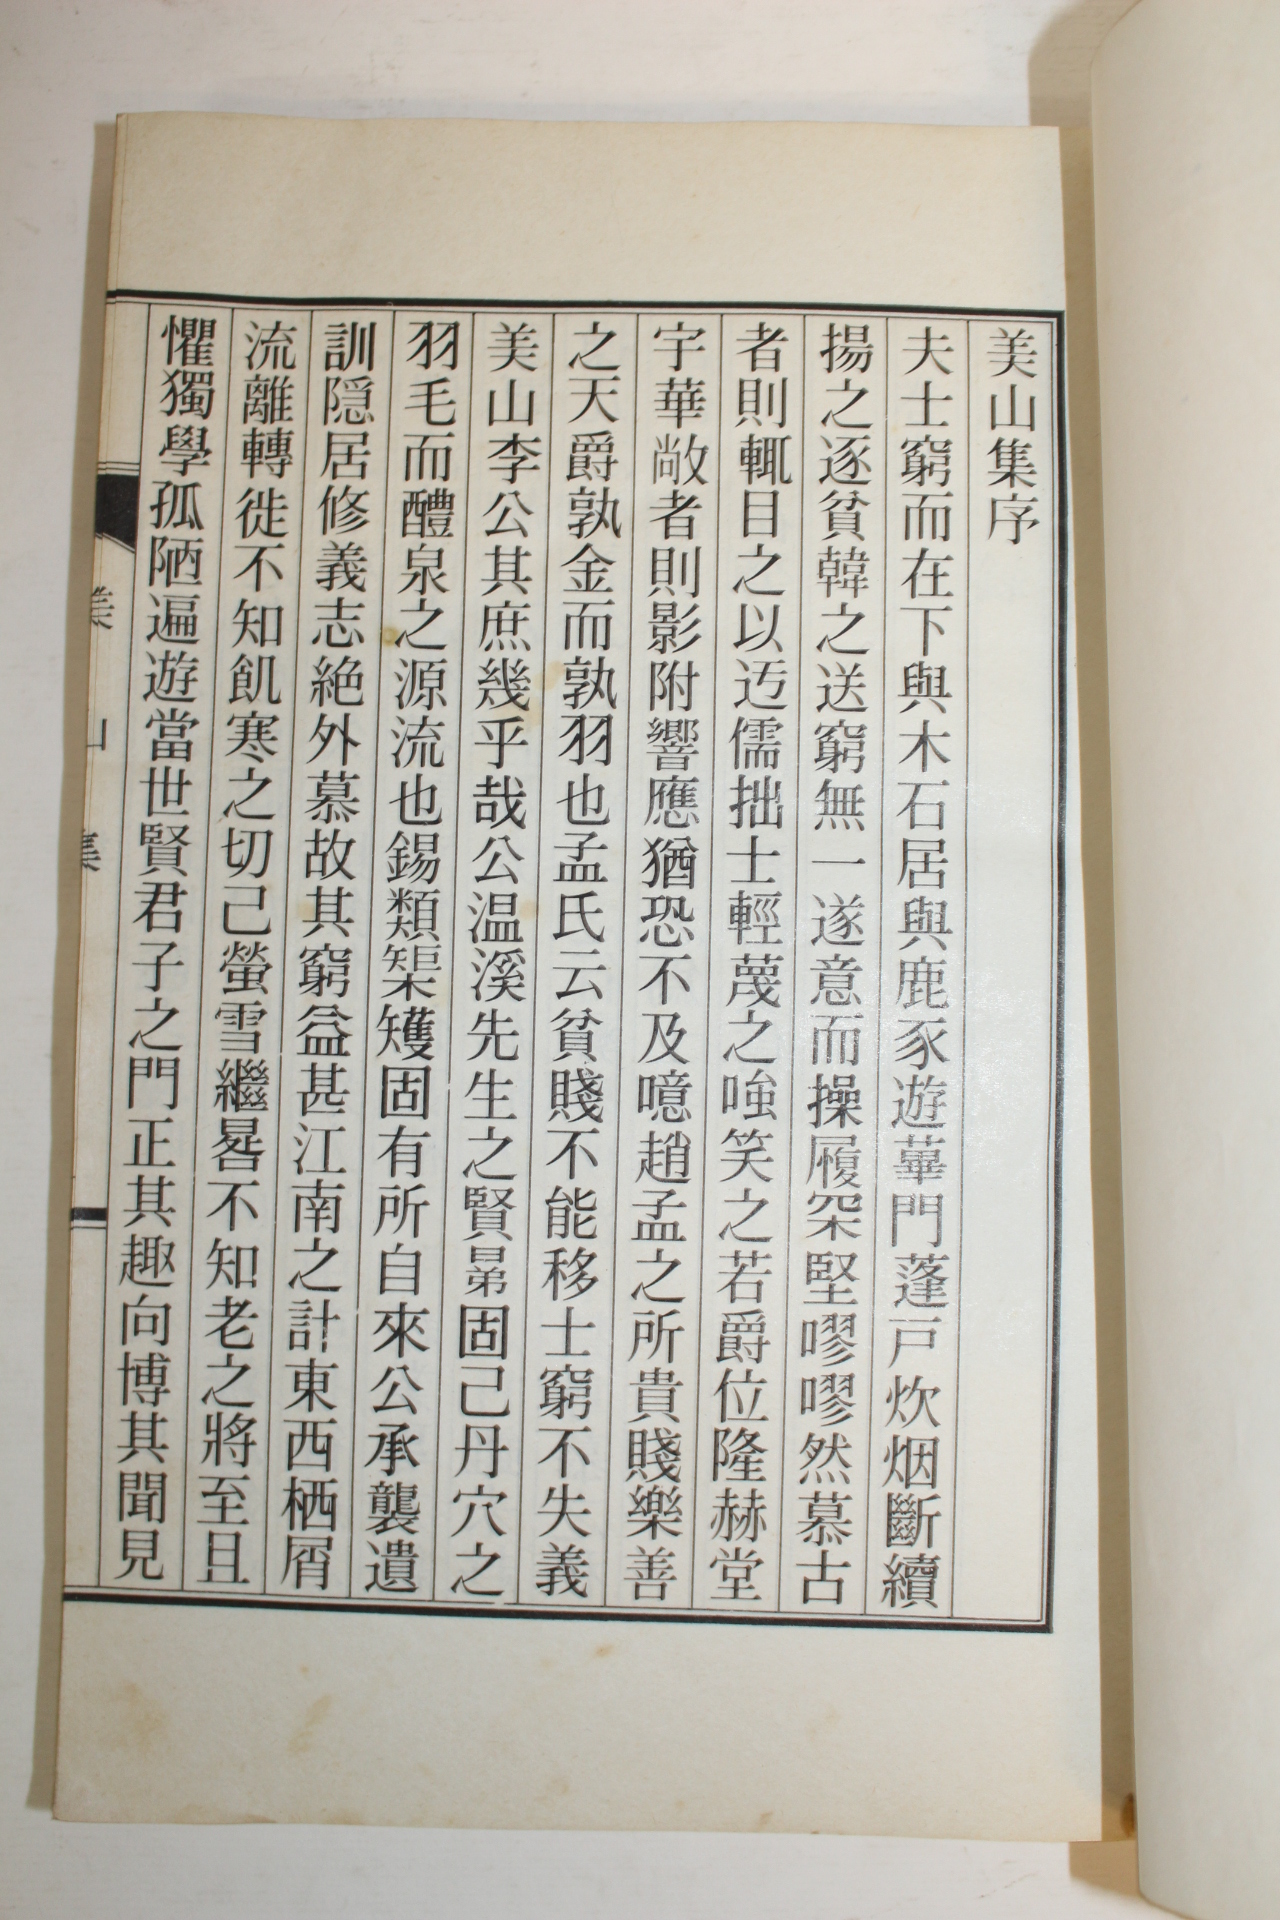 美山集序
夫士窮而在下與木石居與鹿豕遊蓽門蓬戸炊烟斷續
揚之逐貧韓之送窮無一遂意而操履罙堅嘐嘐然慕古
者則輒目之以迃儒拙士輕蔑之嗤笑之若爵位隆赫堂
宇華敞者則影附響應猶恐不及噫趙孟之所貴賤樂善
之天爵孰金而孰羽也孟氏云貧賤不能移士窮不失義
美山李公其庶幾乎哉公温溪先生之賢晜固己丹穴之
羽毛而醴泉之源流也錫類榘矱固有所自來公承襲遺
訓隠居修義志絶外慕故其窮益甚江南之計東西栖屑
流離轉徙不知飢寒之切己螢雪繼晷不知老之將至且
懼獨學孤陋遍遊當世賢君子之門正其趣向博其聞見
美山集